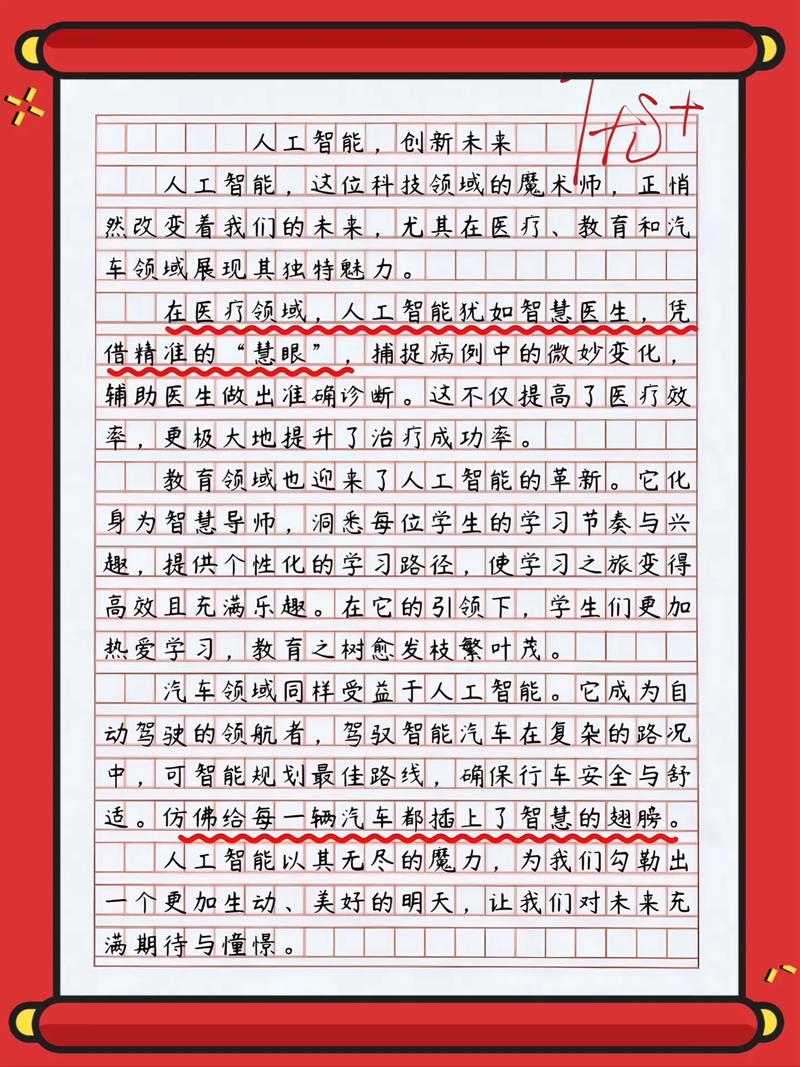 优+
人工智能，创新未来
人工智能，这位科技领域的魔术师，正悄
然改变着我们的未来，尤其在医疗、教育和汽
车领域展现其独特魅力。
在医疗领域，人工智能犹如智慧医生，凭
借精准的“慧眼”，捕捉病例中的微妙变化，
辅助医生做出准确诊断。这不仅提高了医疗效
率，更极大地提升了治疗成功率。
教育领域也迎来了人工智能的革新。它化
身为智慧导师，洞悉每位学生的学习节奏与兴
趣，提供个性化的学习路径，使学习之旅变得
高效且充满乐趣。在它的引领下，学生们更加
热爱学习，教育之树愈发枝繁叶茂。
汽车领域同样受益于人工智能。它成为自
动驾驶的领航者，驾驭智能汽车在复杂的路况
中，可智能规划最佳路线，确保行车安全与舒
适。仿佛给每一辆汽车都插上了智慧的翅膀。
人工智能以其无尽的魔力，为我们勾勒出
一个更加生动、美好的明天，让我们对未来充
满期待与憧憬。